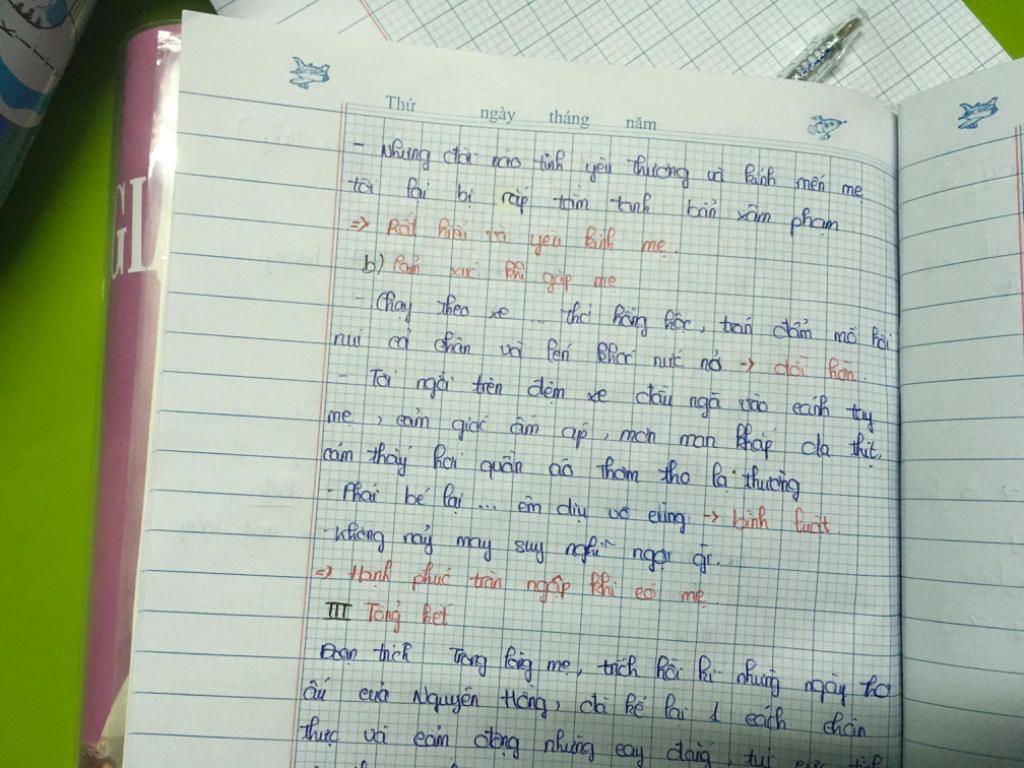 GL
Thứ ngày tháng năm
- Nhưng đời nào tình yêu thương và kính mến mẹ
tôi lại bị rắp tâm tanh bẩn xâm phạm
=> Rất hiểu và yêu kính mẹ.
b) Cảm xúc khi gặp mẹ
- Chạy theo xe ... thở hồng hộc, trán đẫm mồ hôi
ríu cả chân và lên khóc nức nở -> dỗi hờn.
- Tôi ngồi trên đệm xe đầu ngã vào cánh tay
mẹ, cảm giác ấm áp, mơn man khắp da thịt.
cảm thấy hơi quần áo thơm tho lạ thường
- Phải bé lại ... êm dịu vô cùng -> bình luật.
- Không mảy may suy nghĩ ngợi gì.
=> Hạnh phúc tràn ngập khi có mẹ
III Tổng kết
Đoạn trích Trong lòng mẹ, trích hồi kí những ngày thơ
ấu của Nguyên Hồng, đã kể lại 1 cách chân
thực và cảm động những cay đắng, tủi